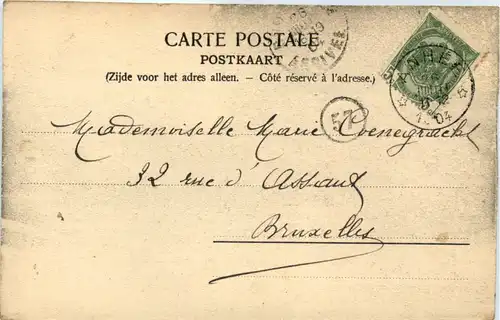 CARTE POSTALE
POSTKAART
(Zijde voor het adres alleen. - Côté réservé à l'adresse.)
57
Mademoiselle Marie Coenegracht
32 rue d'Assaut
Bruxelles